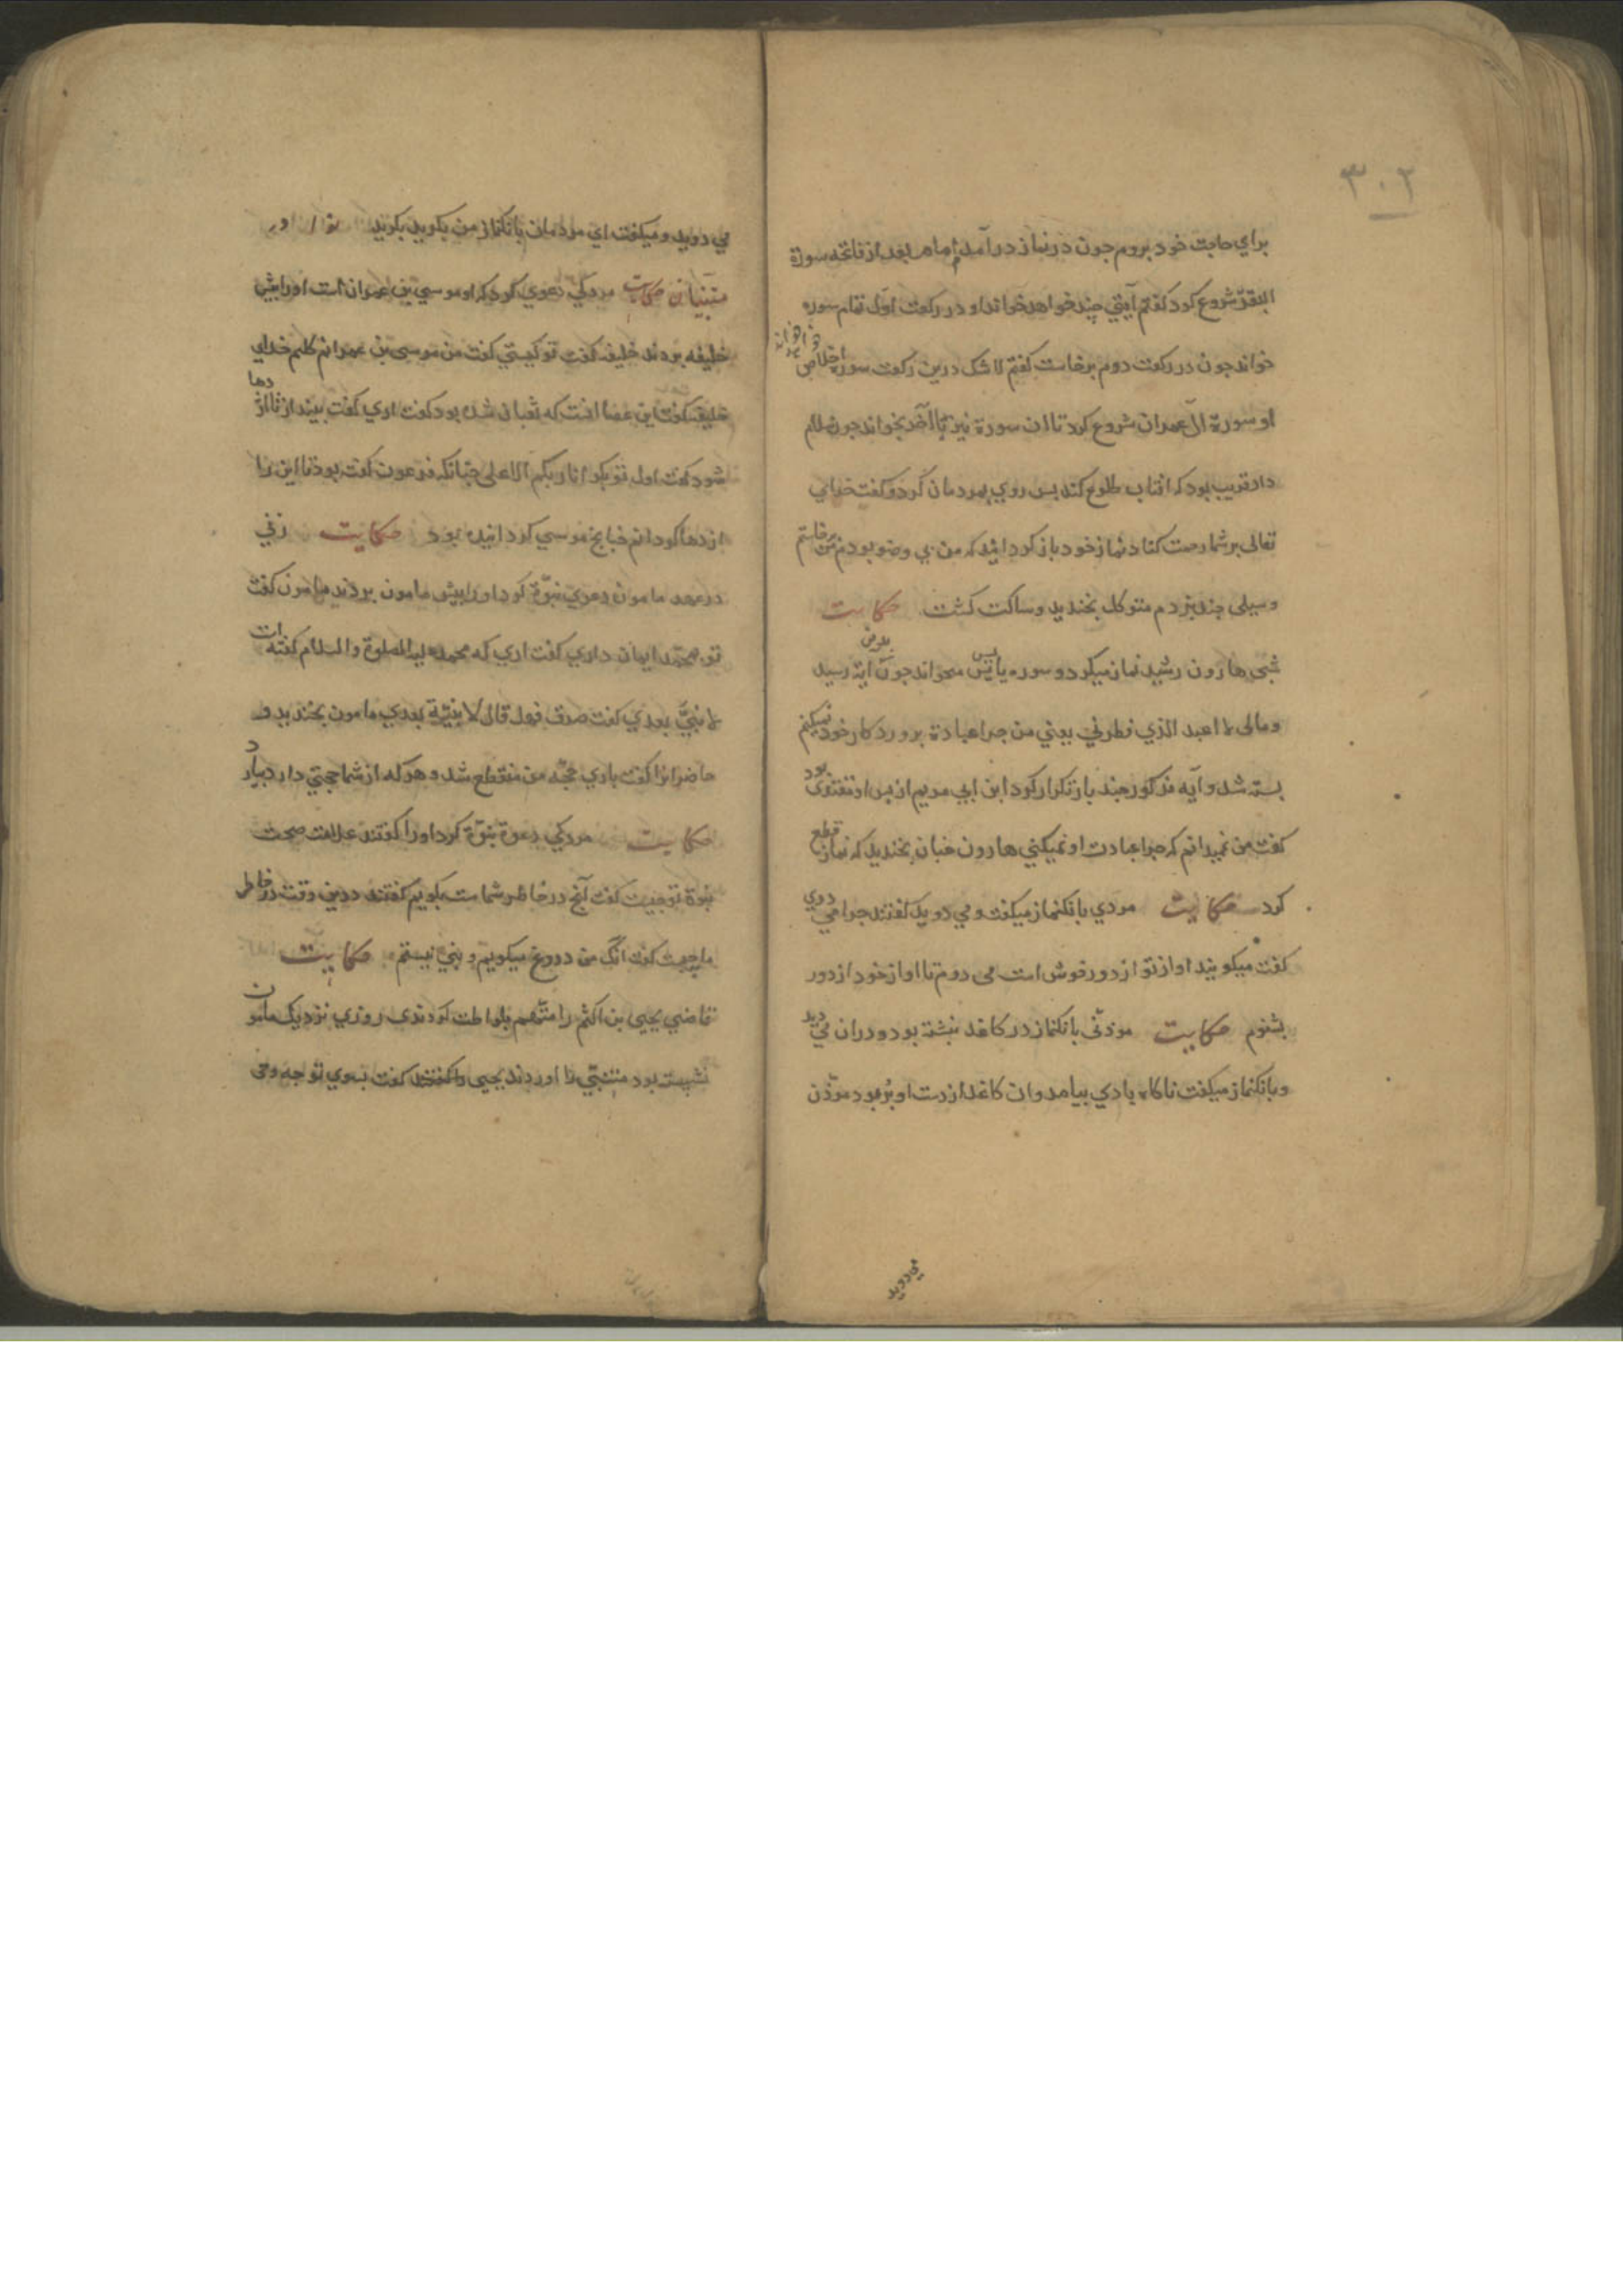 ۳۰۲
براي حاجت خود بروم جون در نماز در آمدم امام بعد از فاتحه سورة
البقرة شروع كرد كفتم آيتي چند خواهد خواند او در ركعت اول تمام سوره
خواند جون در ركعت دوم برخاست كفتم لا شك درين ركعت سوره اخلاص خواهد خواند
او سورة آل عمران شروع كرد تا ان سورة نيز تا آخر بخواند جون سلام
داد قريب بود كه افتاب طلوع كند پس روي بمردمان كرد و كفت خداي
تعالى بر شما رحمت كناد نماز خود باز كردانيد كه من بي وضو بودم من برخاستم
و سيلى چند بزدم متوكل بخنديد و ساكت كشت حكايت
شبى هارون رشيد نماز ميكرد و سوره يا يس ميخواند جون بدين آية رسيد
ومالى لا اعبد الذي فطرني يعني من جرا عبادة پروردكار خود نميكنم
بسته شد و آيه مذكور چند بار تكرار كرد ابن ابي مريم از پس او مقتدى بود
كفت من نميدانم كه جرا عبادت او نميكني هارون خنان بخنديد كه نماز قطع
كرد حكايت مردي بانكنماز ميكفت و مي دويد كفتند جرا مي دوي
كفت ميكويند اواز تو از دور خوش است مى دوم تا اواز خود از دور
بشنوم حكايت موذنى بانكنماز در كاغذ نبشته بود و دران مي ديد
و بانكنماز ميكفت ناكاه بادي بيامد و ان كاغذ از دست او ببرد موذن
مي دويد
مي دويد و ميكفت اي مردمان بانكنماز من بكيريد بكيريد نوادر
متنبيان حكايت مردكي دعوي كرد كه او موسي بن عمران است او را پيش
خليفه بردند خليفه كفت تو كيستي كفت من موسى بن عمرانم كليم خداي
خليفه كفت اين عصا انست كه ثعبان شده بود كفت اري كفت بينداز تا اژدها
شود كفت اول تو بكو انا ربكم الاعلى چنانكه فرعون كفته بود تا اين را
اژدها كردانم خنانچ موسي كردانيده بود حكايت زني
در عهد مامون دعوي نبوة كرد او را پيش مامون بردند مامون كفت
تو بمحمد ايمان داري كفت اري كه محمد عليه الصلوة والسلام كفته است
لا نبيّ بعدي كفت صدق فهل قال لا نبيّة بعدي مامون بخنديد و
حاضرانرا كفت باري حجة من منقطع شد و هر كه از شما حجتي دارد بيارد
حكايت مردكي دعوة نبوّة كرد او را كفتند علامت صحت
نبوة تو چيست كفت آنچ در خاطر شماست بكويم كفتند درين وقت در خاطر
ما چيست كفت انك من دروغ ميكويم و نبي نيستم حكايت
قاضي يحيى بن اكثم را متهم بلواطت كردندى روزي نزديك مامون
نشسته بود متنبّي را اوردند يحيى را كفتند كفت بسوي تو جه وحى